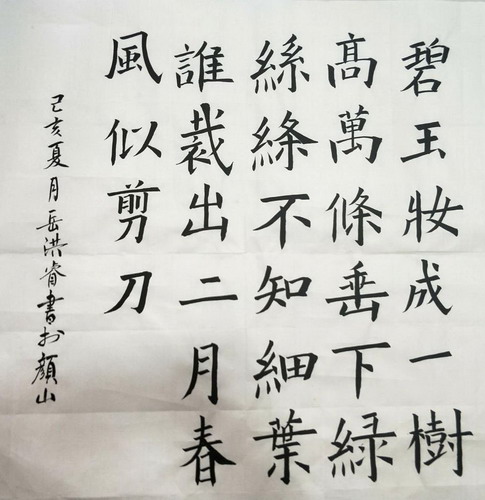 碧玉妝成一樹
高萬條垂下緑
絲絛不知細葉
誰裁出二月春
風似剪刀
己亥夏月岳洪睿書於顏山